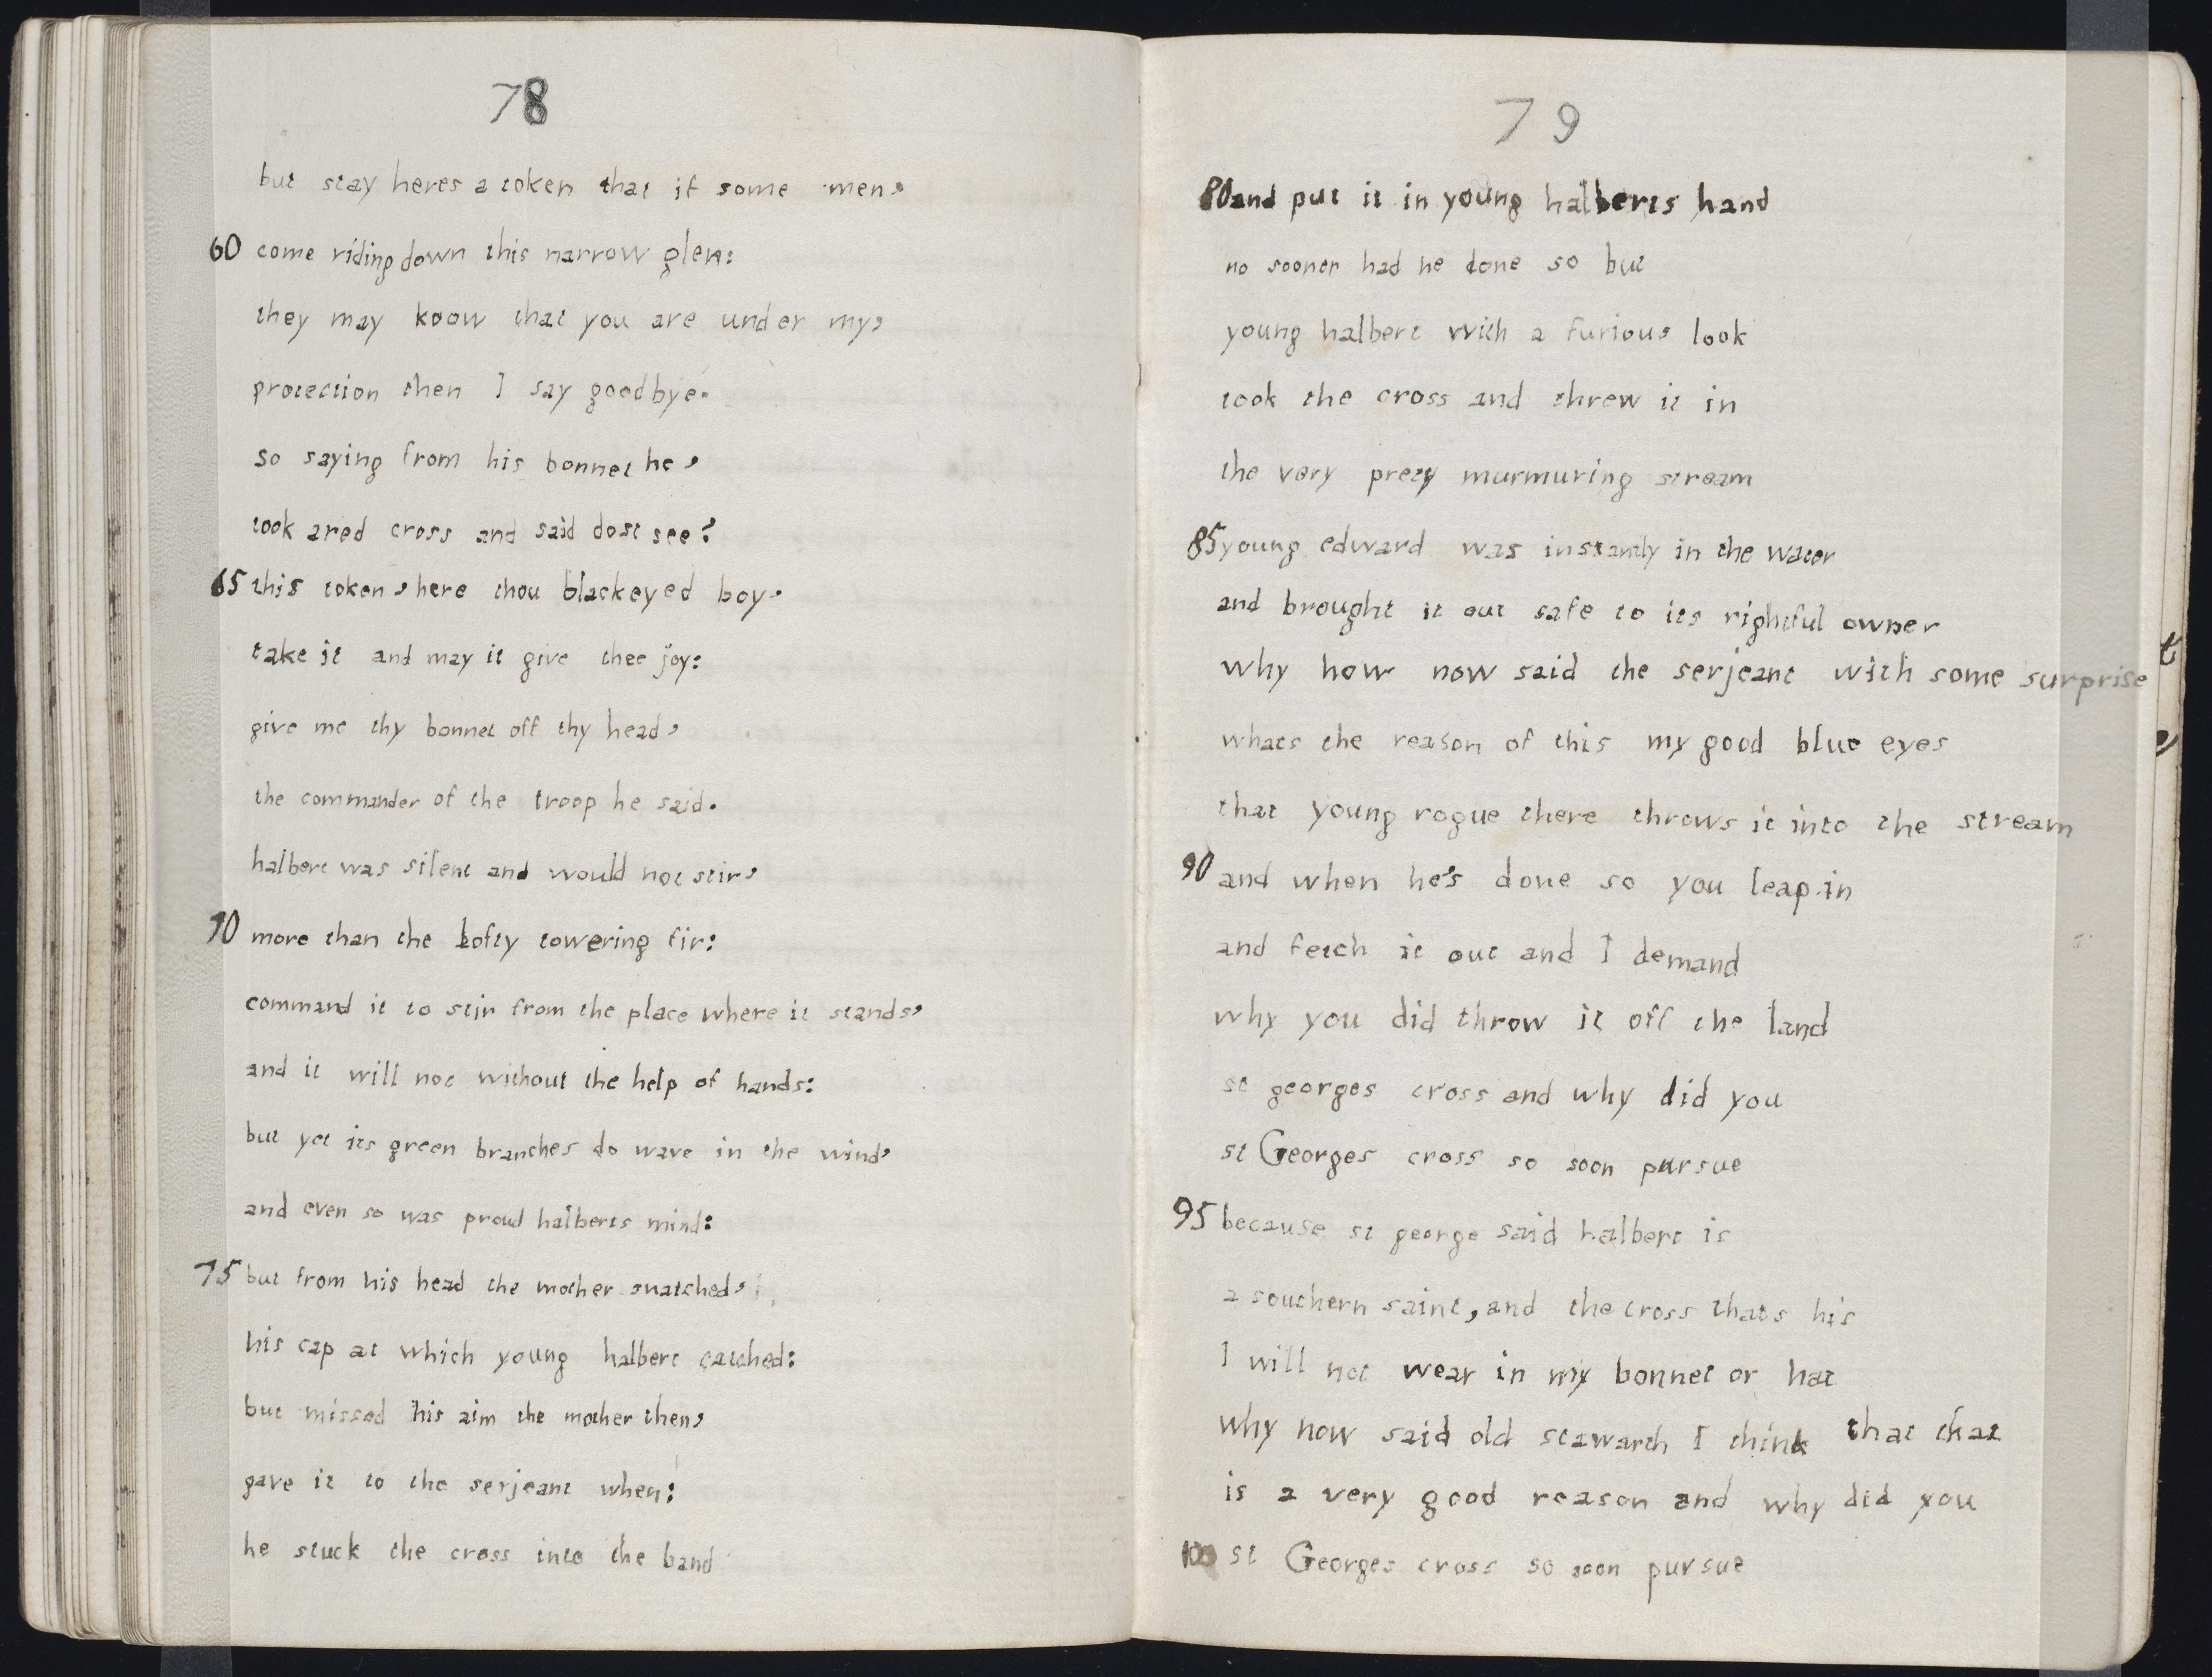 78
but stay heres a token that if some men,
60 come riding down this narrow glen:
they may koow that you are under my,
protection then I say goodbye.
so saying from his bonnet he,
took ared cross and said dost see?
65 this token, here thou blackeyed boy.
take it and may it give thee joy:
give me thy bonnet off thy head,
the commander of the troop he said.
halbert was silent and would not stir,
70 more than the lofty towering fir:
command it to stir from the place where it stands,
and it will not without the help of hands:
but yet its green branches do wave in the wind,
and even so was proud halberts mind:
75 but from his head the mother snatched,
his cap at which young halbert catched:
but missed his aim the mother then,
gave it to the serjeant when:
he stuck the cross into the band
79
80 and put it in young halberts hand
no sooner had he done so but
young halbert with a furious look
took the cross and threw it in
the very prety murmuring stream
85 young edward was instantly in the water
and brought it out safe to its rightful owner
why how now said the serjeant with some surprise
whats the reason of this my good blue eyes
that young rogue there throws it into the stream
90 and when he's done so you leap in
and fetch it out and I demand
why you did throw it off the land
st georges cross and why did you
st Georges cross so soon pursue
95 because st george said halbert is
a southern saint, and the cross thats his
I will not wear in my bonnet or hat
why now said old stawarth I think that that
is a very good reason and why did you
100 st Georges cross so soon pursue